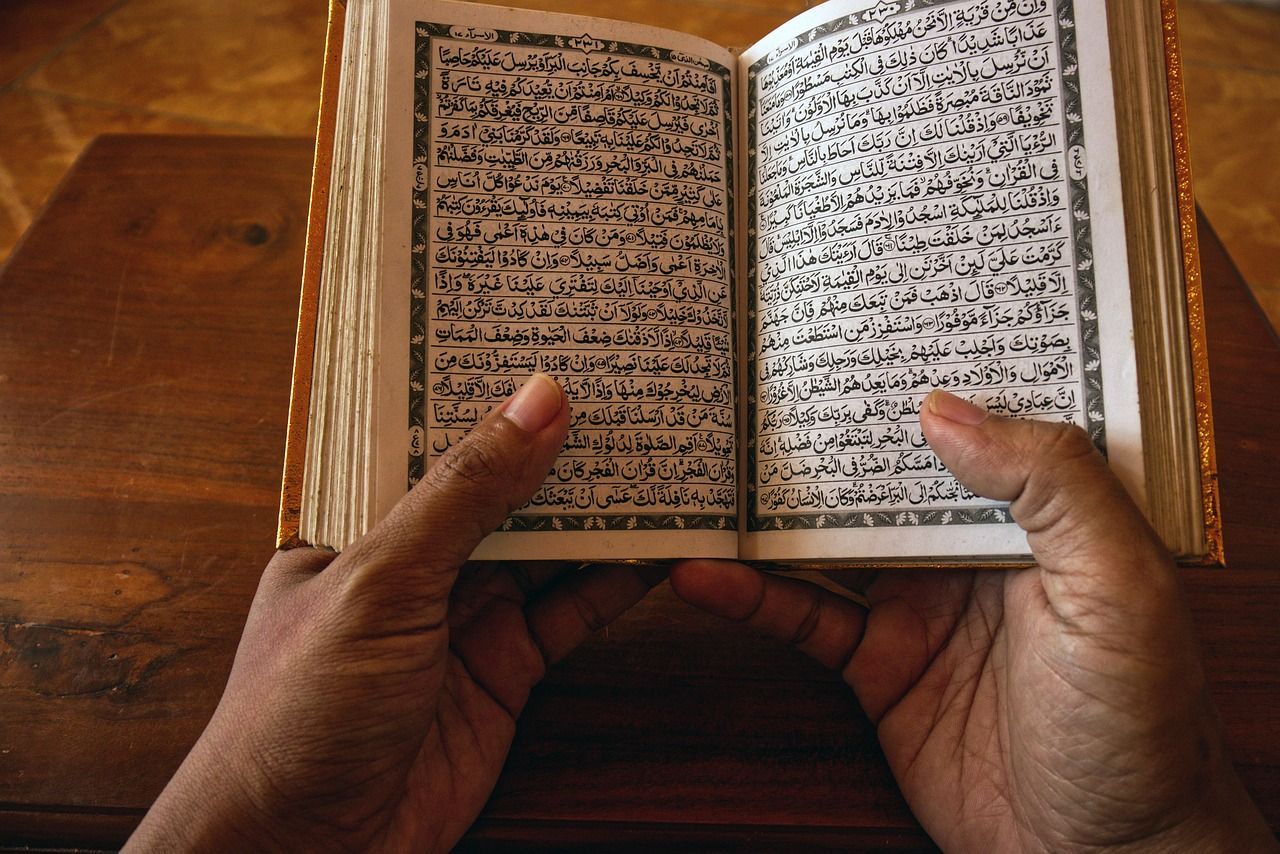 الاسرآء ١٧
٢٣٠
وَاِنْ مِّنْ قَرْيَةٍ اِلَّا نَحْنُ مُهْلِكُوْهَا قَبْلَ يَوْمِ الْقِيٰمَةِ اَوْ مُعَذِّبُوْهَا
عَذَابًا شَدِيْدًا كَانَ ذٰلِكَ فِى الْكِتٰبِ مَسْطُوْرًا ٥٨ وَمَا مَنَعَنَآ
اَنْ نُّرْسِلَ بِالْاٰيٰتِ اِلَّآ اَنْ كَذَّبَ بِهَا الْاَوَّلُوْنَ وَاٰتَيْنَا
ثَمُوْدَ النَّاقَةَ مُبْصِرَةً فَظَلَمُوْا بِهَا وَمَا نُرْسِلُ بِالْاٰيٰتِ اِلَّا
تَخْوِيْفًا ٥٩ وَاِذْ قُلْنَا لَكَ اِنَّ رَبَّكَ اَحَاطَ بِالنَّاسِ وَمَا جَعَلْنَا
الرُّءْيَا الَّتِيْٓ اَرَيْنٰكَ اِلَّا فِتْنَةً لِّلنَّاسِ وَالشَّجَرَةَ الْمَلْعُوْنَةَ
فِى الْقُرْاٰنِ وَنُخَوِّفُهُمْ فَمَا يَزِيْدُهُمْ اِلَّا طُغْيَانًا كَبِيْرًا ٦٠
وَاِذْ قُلْنَا لِلْمَلٰٓئِكَةِ اسْجُدُوْا لِاٰدَمَ فَسَجَدُوْٓا اِلَّآ اِبْلِيْسَ قَالَ
ءَاَسْجُدُ لِمَنْ خَلَقْتَ طِيْنًا ٦١ قَالَ اَرَءَيْتَكَ هٰذَا الَّذِيْ
كَرَّمْتَ عَلَيَّ لَئِنْ اَخَّرْتَنِ اِلٰى يَوْمِ الْقِيٰمَةِ لَاَحْتَنِكَنَّ ذُرِّيَّتَهٗٓ
اِلَّا قَلِيْلًا ٦٢ قَالَ اذْهَبْ فَمَنْ تَبِعَكَ مِنْهُمْ فَاِنَّ جَهَنَّمَ
جَزَآؤُكُمْ جَزَآءً مَّوْفُوْرًا ٦٣ وَاسْتَفْزِزْ مَنِ اسْتَطَعْتَ مِنْهُمْ
بِصَوْتِكَ وَاَجْلِبْ عَلَيْهِمْ بِخَيْلِكَ وَرَجِلِكَ وَشَارِكْهُمْ فِى
الْاَمْوَالِ وَالْاَوْلَادِ وَعِدْهُمْ وَمَا يَعِدُهُمُ الشَّيْطٰنُ اِلَّا غُرُوْرًا ٦٤
اِنَّ عِبَادِيْ لَيْسَ سُلْطٰنٌ وَكَفٰى بِرَبِّكَ وَكِيْلًا ٦٥ رَبُّكُمُ
فِى الْبَحْرِ لِتَبْتَغُوْا مِنْ فَضْلِهٖ اِنَّهٗ
مَسَّكُمُ الضُّرُّ فِى الْبَحْرِ ضَلَّ مَنْ
نَجّٰىكُمْ اِلَى الْبَرِّ اَعْرَضْتُمْ وَكَانَ الْاِنْسَانُ كَفُوْرًا ٦٧
سبحن الذى ١٥
٢٣١
الاسرآء ١٧
اَفَاَمِنْتُمْ اَنْ يَّخْسِفَ بِكُمْ جَانِبَ الْبَرِّ اَوْ يُرْسِلَ عَلَيْكُمْ حَاصِبًا
ثُمَّ لَا تَجِدُوْا لَكُمْ وَكِيْلًا ٦٨ اَمْ اَمِنْتُمْ اَنْ يُّعِيْدَكُمْ فِيْهِ تَارَةً
اُخْرٰى فَيُرْسِلَ عَلَيْكُمْ قَاصِفًا مِّنَ الرِّيْحِ فَيُغْرِقَكُمْ بِمَا كَفَرْتُمْ
ثُمَّ لَا تَجِدُوْا لَكُمْ عَلَيْنَا بِهٖ تَبِيْعًا ٦٩ وَلَقَدْ كَرَّمْنَا بَنِيْٓ اٰدَمَ وَ
حَمَلْنٰهُمْ فِى الْبَرِّ وَالْبَحْرِ وَرَزَقْنٰهُمْ مِّنَ الطَّيِّبٰتِ وَفَضَّلْنٰهُمْ
عَلٰى كَثِيْرٍ مِّمَّنْ خَلَقْنَا تَفْضِيْلًا ٧٠ يَوْمَ نَدْعُوْا كُلَّ اُنَاسٍ
بِاِمَامِهِمْ فَمَنْ اُوْتِيَ كِتٰبَهٗ بِيَمِيْنِهٖ فَاُولٰٓئِكَ يَقْرَءُوْنَ كِتٰبَهُمْ
وَلَا يُظْلَمُوْنَ فَتِيْلًا ٧١ وَمَنْ كَانَ فِيْ هٰذِهٖٓ اَعْمٰى فَهُوَ فِى
الْاٰخِرَةِ اَعْمٰى وَاَضَلُّ سَبِيْلًا ٧٢ وَاِنْ كَادُوْا لَيَفْتِنُوْنَكَ
عَنِ الَّذِيْٓ اَوْحَيْنَآ اِلَيْكَ لِتَفْتَرِيَ عَلَيْنَا غَيْرَهٗ وَاِذًا
لَّاتَّخَذُوْكَ خَلِيْلًا ٧٣ وَلَوْلَآ اَنْ ثَبَّتْنٰكَ لَقَدْ كِدْتَّ تَرْكَنُ اِلَيْهِمْ
شَيْئًا قَلِيْلًا ٧٤ اِذًا لَّاَذَقْنٰكَ ضِعْفَ الْحَيٰوةِ وَضِعْفَ الْمَمَاتِ
ثُمَّ لَا تَجِدُ لَكَ عَلَيْنَا نَصِيْرًا ٧٥ وَاِنْ كَادُوْا لَيَسْتَفِزُّوْنَكَ مِنَ
الْاَرْضِ لِيُخْرِجُوْكَ مِنْهَا وَاِذًا لَّا خِلٰفَكَ اِلَّا قَلِيْلًا ٧٦
سُنَّةَ مَنْ قَدْ اَرْسَلْنَا قَبْلَكَ مِنْ لِسُنَّتِنَا
تَحْوِيْلًا ٧٧ اَقِمِ الصَّلٰوةَ لِدُلُوْكِ الشَّمْسِ
وَقُرْاٰنَ الْفَجْرِ اِنَّ قُرْاٰنَ الْفَجْرِ كَانَ
فَتَهَجَّدْ بِهٖ نَافِلَةً لَّكَ عَسٰٓى اَنْ يَّبْعَثَكَ